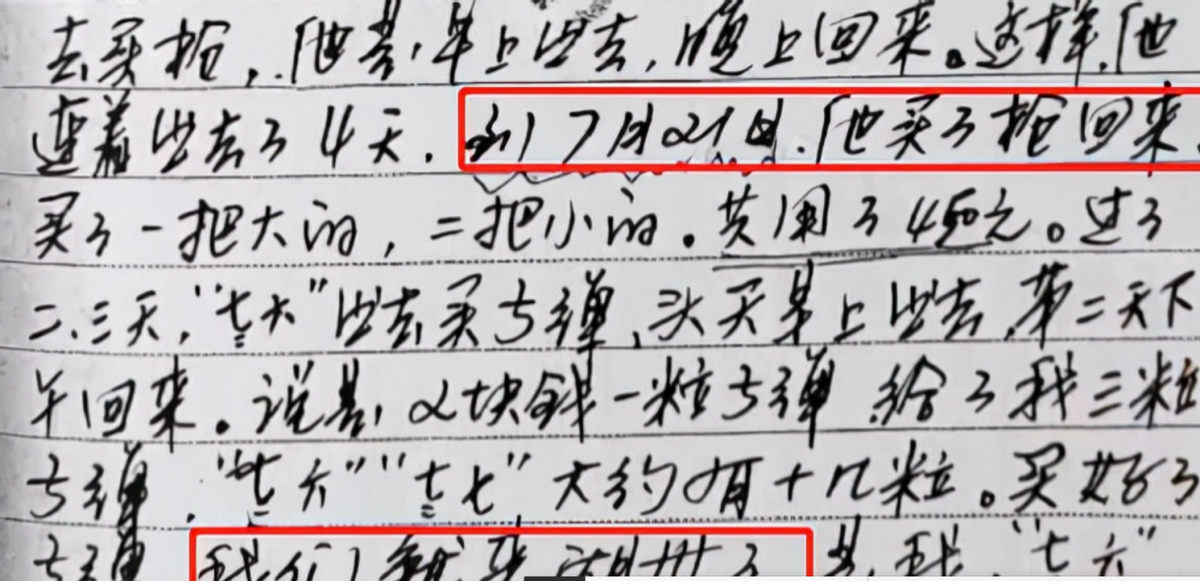 去买枪，他是早上出去，晚上回来。这样，他
连着出去了4天．到7月21日．他买了枪回来．
买了一把大的，二把小的．共用了450元。过了
二、三天，“七六”出去买子弹，头天早上出去，第二天下
午回来。说是，2块钱一粒子弹 给了我三粒
子弹．“七六”“七七”大约有十几粒。买好了
子弹 我们就 了 是 我．“七六”